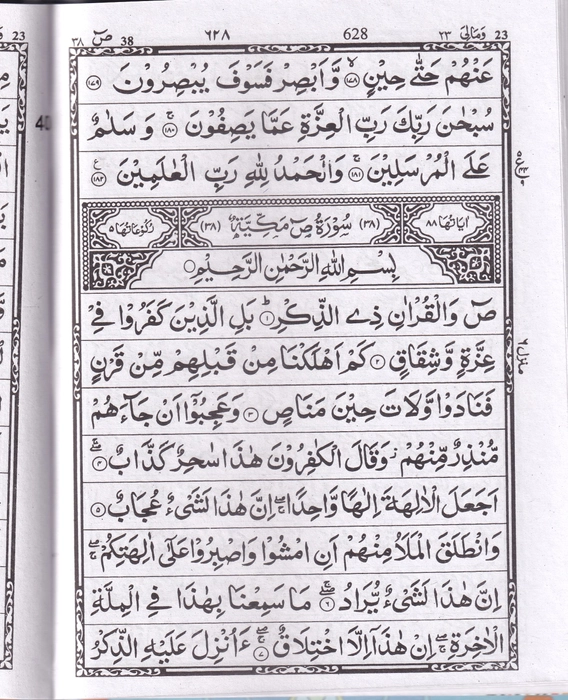 صٓ ٣٨ 38 ٦٢٨ 628 وَمَالِىَ ٢٣ 23
عَنْهُمْ حَتّٰى حِيْنٍ ﴿١٧٨﴾ وَّاَبْصِرْ فَسَوْفَ يُبْصِرُوْنَ ﴿١٧٩﴾
سُبْحٰنَ رَبِّكَ رَبِّ الْعِزَّةِ عَمَّا يَصِفُوْنَ ﴿١٨٠﴾ وَ سَلٰمٌ
عَلَى الْمُرْسَلِيْنَ ﴿١٨١﴾ وَالْحَمْدُ لِلّٰهِ رَبِّ الْعٰلَمِيْنَ ﴿١٨٢﴾
اٰيَاتُهَا ٨٨ (٣٨) سُوْرَةُ صٓ مَكِّيَّةٌ (٣٨) رُكُوْعَاتُهَا ٥
بِسْمِ اللّٰهِ الرَّحْمٰنِ الرَّحِيْمِ
صٓ وَالْقُرْاٰنِ ذِى الذِّكْرِ ﴿١﴾ بَلِ الَّذِيْنَ كَفَرُوْا فِىْ
عِزَّةٍ وَّشِقَاقٍ ﴿٢﴾ كَمْ اَهْلَكْنَا مِنْ قَبْلِهِمْ مِّنْ قَرْنٍ
فَنَادَوْا وَّلَاتَ حِيْنَ مَنَاصٍ ﴿٣﴾ وَعَجِبُوْٓا اَنْ جَآءَهُمْ
مُّنْذِرٌ مِّنْهُمْ وَقَالَ الْكٰفِرُوْنَ هٰذَا سٰحِرٌ كَذَّابٌ ﴿٤﴾
اَجَعَلَ الْاٰلِهَةَ اِلٰهًا وَّاحِدًا اِنَّ هٰذَا لَشَىْءٌ عُجَابٌ ﴿٥﴾
وَانْطَلَقَ الْمَلَاُ مِنْهُمْ اَنِ امْشُوْا وَاصْبِرُوْا عَلٰٓى اٰلِهَتِكُمْ
اِنَّ هٰذَا لَشَىْءٌ يُّرَادُ ﴿٦﴾ مَا سَمِعْنَا بِهٰذَا فِى الْمِلَّةِ
الْاٰخِرَةِ اِنْ هٰذَآ اِلَّا اخْتِلَاقٌ ﴿٧﴾ ءَاُنْزِلَ عَلَيْهِ الذِّكْرُ
منزل ٦